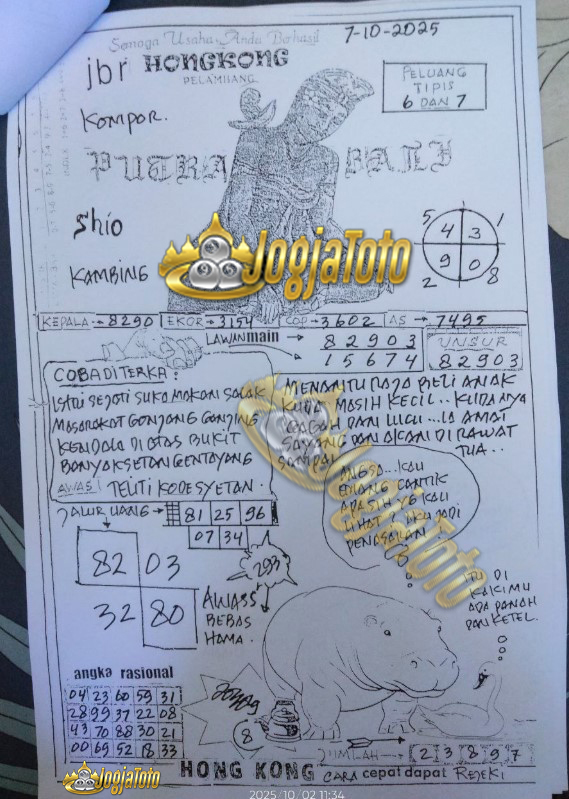 Semoga Usaha Anda Berhasil
7-10-2025
jbr HONGKONG
PELAMBANG
PELUANG
TIPIS
6 DAN 7
KOMPOR.
PUTRA BALI
Shio
KAMBING
JogjaToto
5 4 3 1
2 9 0 8
KEPALA → 8290 EKOR → 3154 COP → 3602 AS → 7495
LAWAN main → 8 2 9 0 3
→ 1 5 6 7 4
UNSUR
82903
COBA DITERKA :
ISTRI SEJATI SUKA MAKAN SALAK
MASARAKAT GONJANG GANJING
KENDALA DI ATAS BUKIT
BANYAK SETAN GENTAYANG
AWAS! TELITI KODE SYETAN.
MENANTU RAJA BELI ANAK
KUDA MASIH KECIL.. KUDANYA
GAGAH DAN LUCU... IA AMAT
SAYANG DAN AKAN DI RAWAT
SAMPAI TUA...
ANGSA... KAU
EMANG CANTIK
APA SIH YG KAU
LIHAT? AKU JADI
PENASARAN.
JogjaToto
JALUR UANG → 81 25 96
07 34
82 03
32 80
293
AWASS
BEBAS
HAMA.
ITU DI
KAKIMU
ADA PANAH
DAN KETEL.
angka rasional
04 23 60 59 31
28 99 37 22 08
43 70 88 30 21
00 69 52 18 33
8
JUMLAH → 2 3 8 9 7
JogjaToto
HONG KONG CARA cepat dapat REJEKI
2025/10/02 11:34